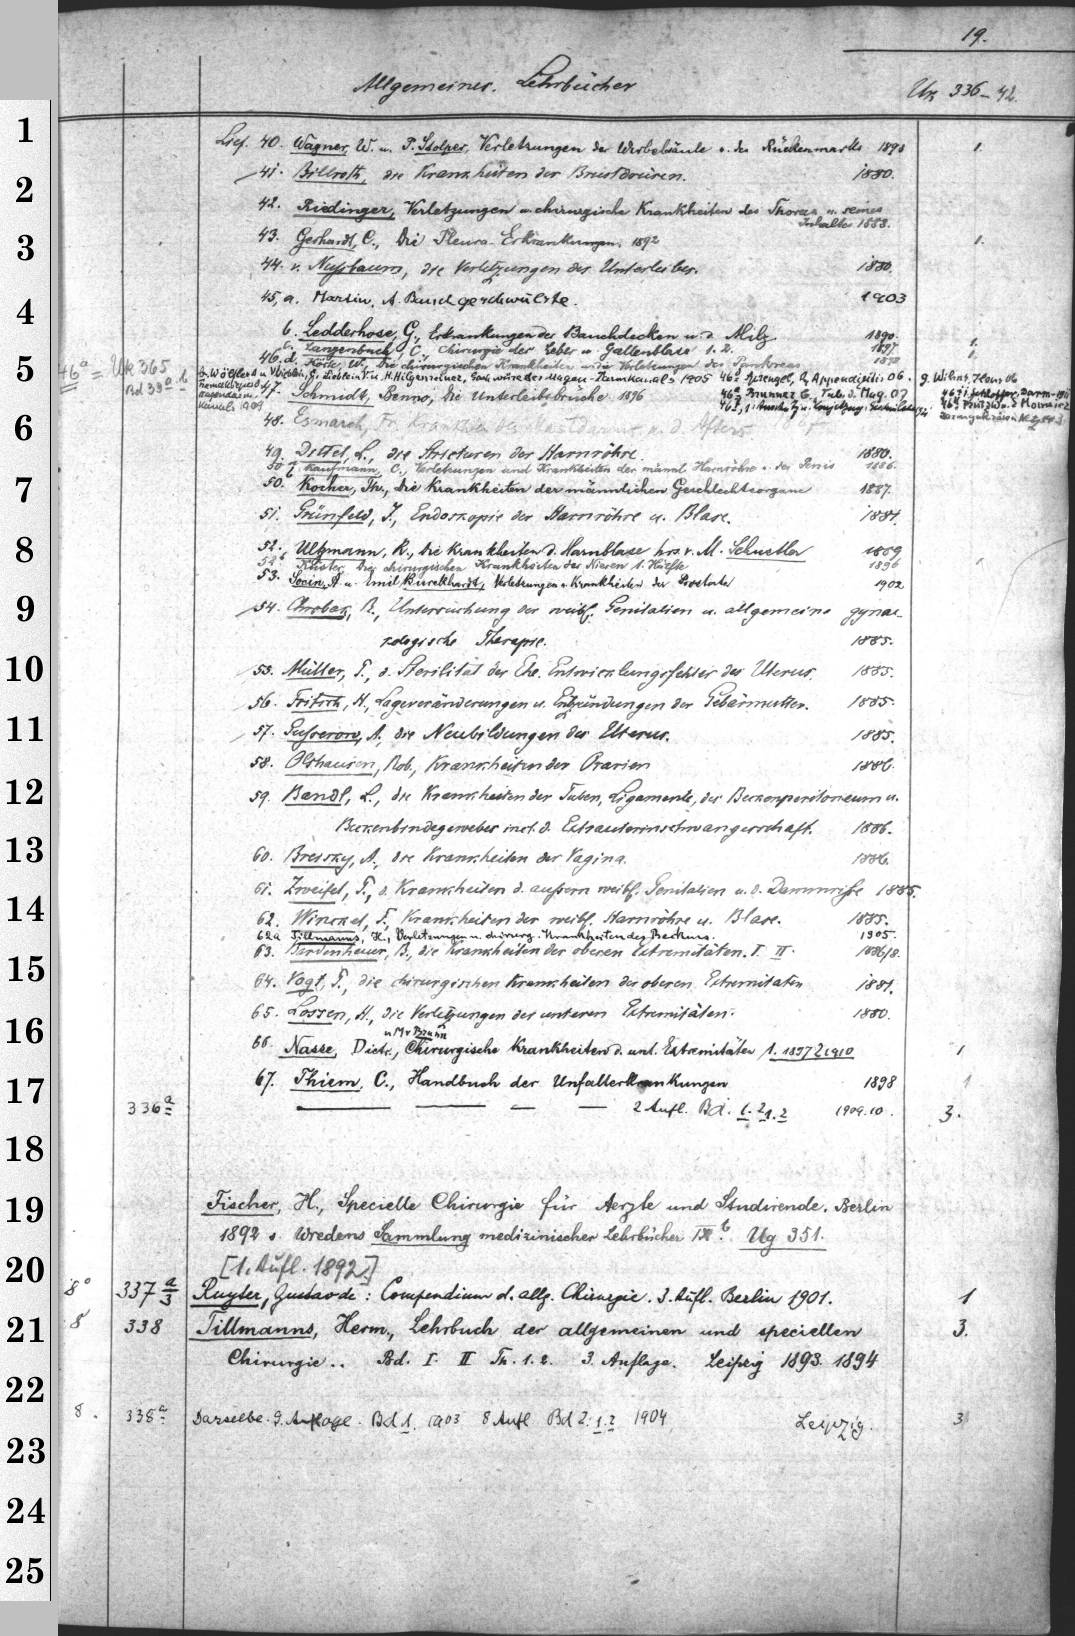 19.
Allgemeines. Lehrbücher
Uk 336-42.
1
Lief. 40. Wagner, W. u. P. Stolper, Verletzungen der Wirbelsäule u. des Rückenmarks 1898 1.
2
41. Billroth, die Krankheiten der Brustdrüsen. 1880.
42. Riedinger, Verletzungen u. chirurgische Krankheiten des Thorax u. seines
Inhaltes 1888.
3
43. Gerhardt, C., Die Pleura-Erkrankungen. 1892 1.
44. v. Nussbaum, die Verletzungen des Unterleibes. 1880.
4
45, a. Martin, A. Bauchgeschwülste. 1903
b. Ledderhose, G., Erkrankungen der Bauchdecken u. d. Milz 1890. 1.
c. Langenbuch, C., Chirurgie der Leber u. Gallenblase 1. 2. 1897 1.
5
46a = Uk 365
Bd 39a.b
46. d. Körte, W., Die chirurgischen Krankheiten und die Verletzungen des Pankreas 1898
1905 46d Sprengel, O, Appendicitis 06. g. Wilms, Ileus 06
47. Schmidt, Benno, Die Unterleibsbrüche 1896
1909
6
48. Esmarch, Fr. Krankheiten des Mastdarms u. d. Afters
49. Dittel, L., die Stricturen der Harnröhre. 1880.
50a Kaufmann, C., Verletzungen und Krankheiten der männl. Harnröhre u. des Penis 1886.
7
50.b Kocher, Th., Die Krankheiten der männlichen Geschlechtsorgane 1887.
51. Grünfeld, J., Endoskopie der Harnröhre u. Blase. 1881.
8
52. Ultzmann, R., Die Krankheiten d. Harnblase hrs. v. M. Schustler 1889
52b Küster. Die chirurgischen Krankheiten der Nieren 1. Hälfte 1896 1
53. Socin, A. u. Emil Burckhardt, Verletzungen u. Krankheiten der Prostata 1902
9
54. Chrobak, R., Untersuchung der weibl. Genitalien u. allgemeine gynae-
kologische Therapie. 1885.
10
55. Müller, P., d. Sterilität der Ehe. Entwicklungsfehler des Uterus. 1885.
11
56. Fritsch, H., Lageveränderungen u. Entzündungen der Gebärmutter. 1885.
57. Gusserow, A., die Neubildungen des Uterus. 1885.
58. Olshausen, Rob., Krankheiten der Ovarien 1886.
12
59. Bandl, L., die Krankheiten der Tuben, Ligamente, des Beckenperitoneum u.
Beckenbindegewebes incl. d. Extrauterinschwangerschaft. 1886.
13
60. Breisky, A., die Krankheiten der Vagina. 1886.
61. Zweifel, P., d. Krankheiten d. äussern weibl. Genitalien u. d. Dammrisse 1885.
14
62. Winckel, F., Krankheiten der weibl. Harnröhre u. Blase. 1885.
62a Tillmanns, H., Verletzungen u. chirurg. Krankheiten des Beckens. 1905.
63. Bardenheuer, B., die Krankheiten der oberen Extremitäten. I II. 1886/8.
15
64. Vogt, P., die chirurgischen Krankheiten der oberen Extremitäten 1881.
65. Lossen, H., Die Verletzungen der unteren Extremitäten. 1880.
16
u. M v Brunn
66. Nasse, Dietr., Chirurgische Krankheiten d. unt. Extremitäten 1. 1897 2 1910 1
17
67. Thiem, C., Handbuch der Unfallerkrankungen 1898 1
336a — — — — 2 Aufl. Bd. 1. 2 1. 2 1909.10. 3.
18
19
Fischer, H., Specielle Chirurgie für Aerzte und Studirende. Berlin
1892 s. Wredens Sammlung medizinischer Lehrbücher Ug 351.
20
[1. Aufl. 1892]
8° 337 a/3 Ruyter, Gustav de: Compendium d. allg. Chirurgie. 3. Aufl. Berlin 1901. 1
21
8 338 Tillmanns, Herm., Lehrbuch der allgemeinen und speciellen 3.
Chirurgie.. Bd. I. II Th. 1. 2. 3. Auflage. Leipzig 1893. 1894
22
8. 338a Dasselbe. 9. Auflage. Bd 1. 1903 8 Aufl Bd 2. 1.2 1904. Leipzig. 3
23
24
25